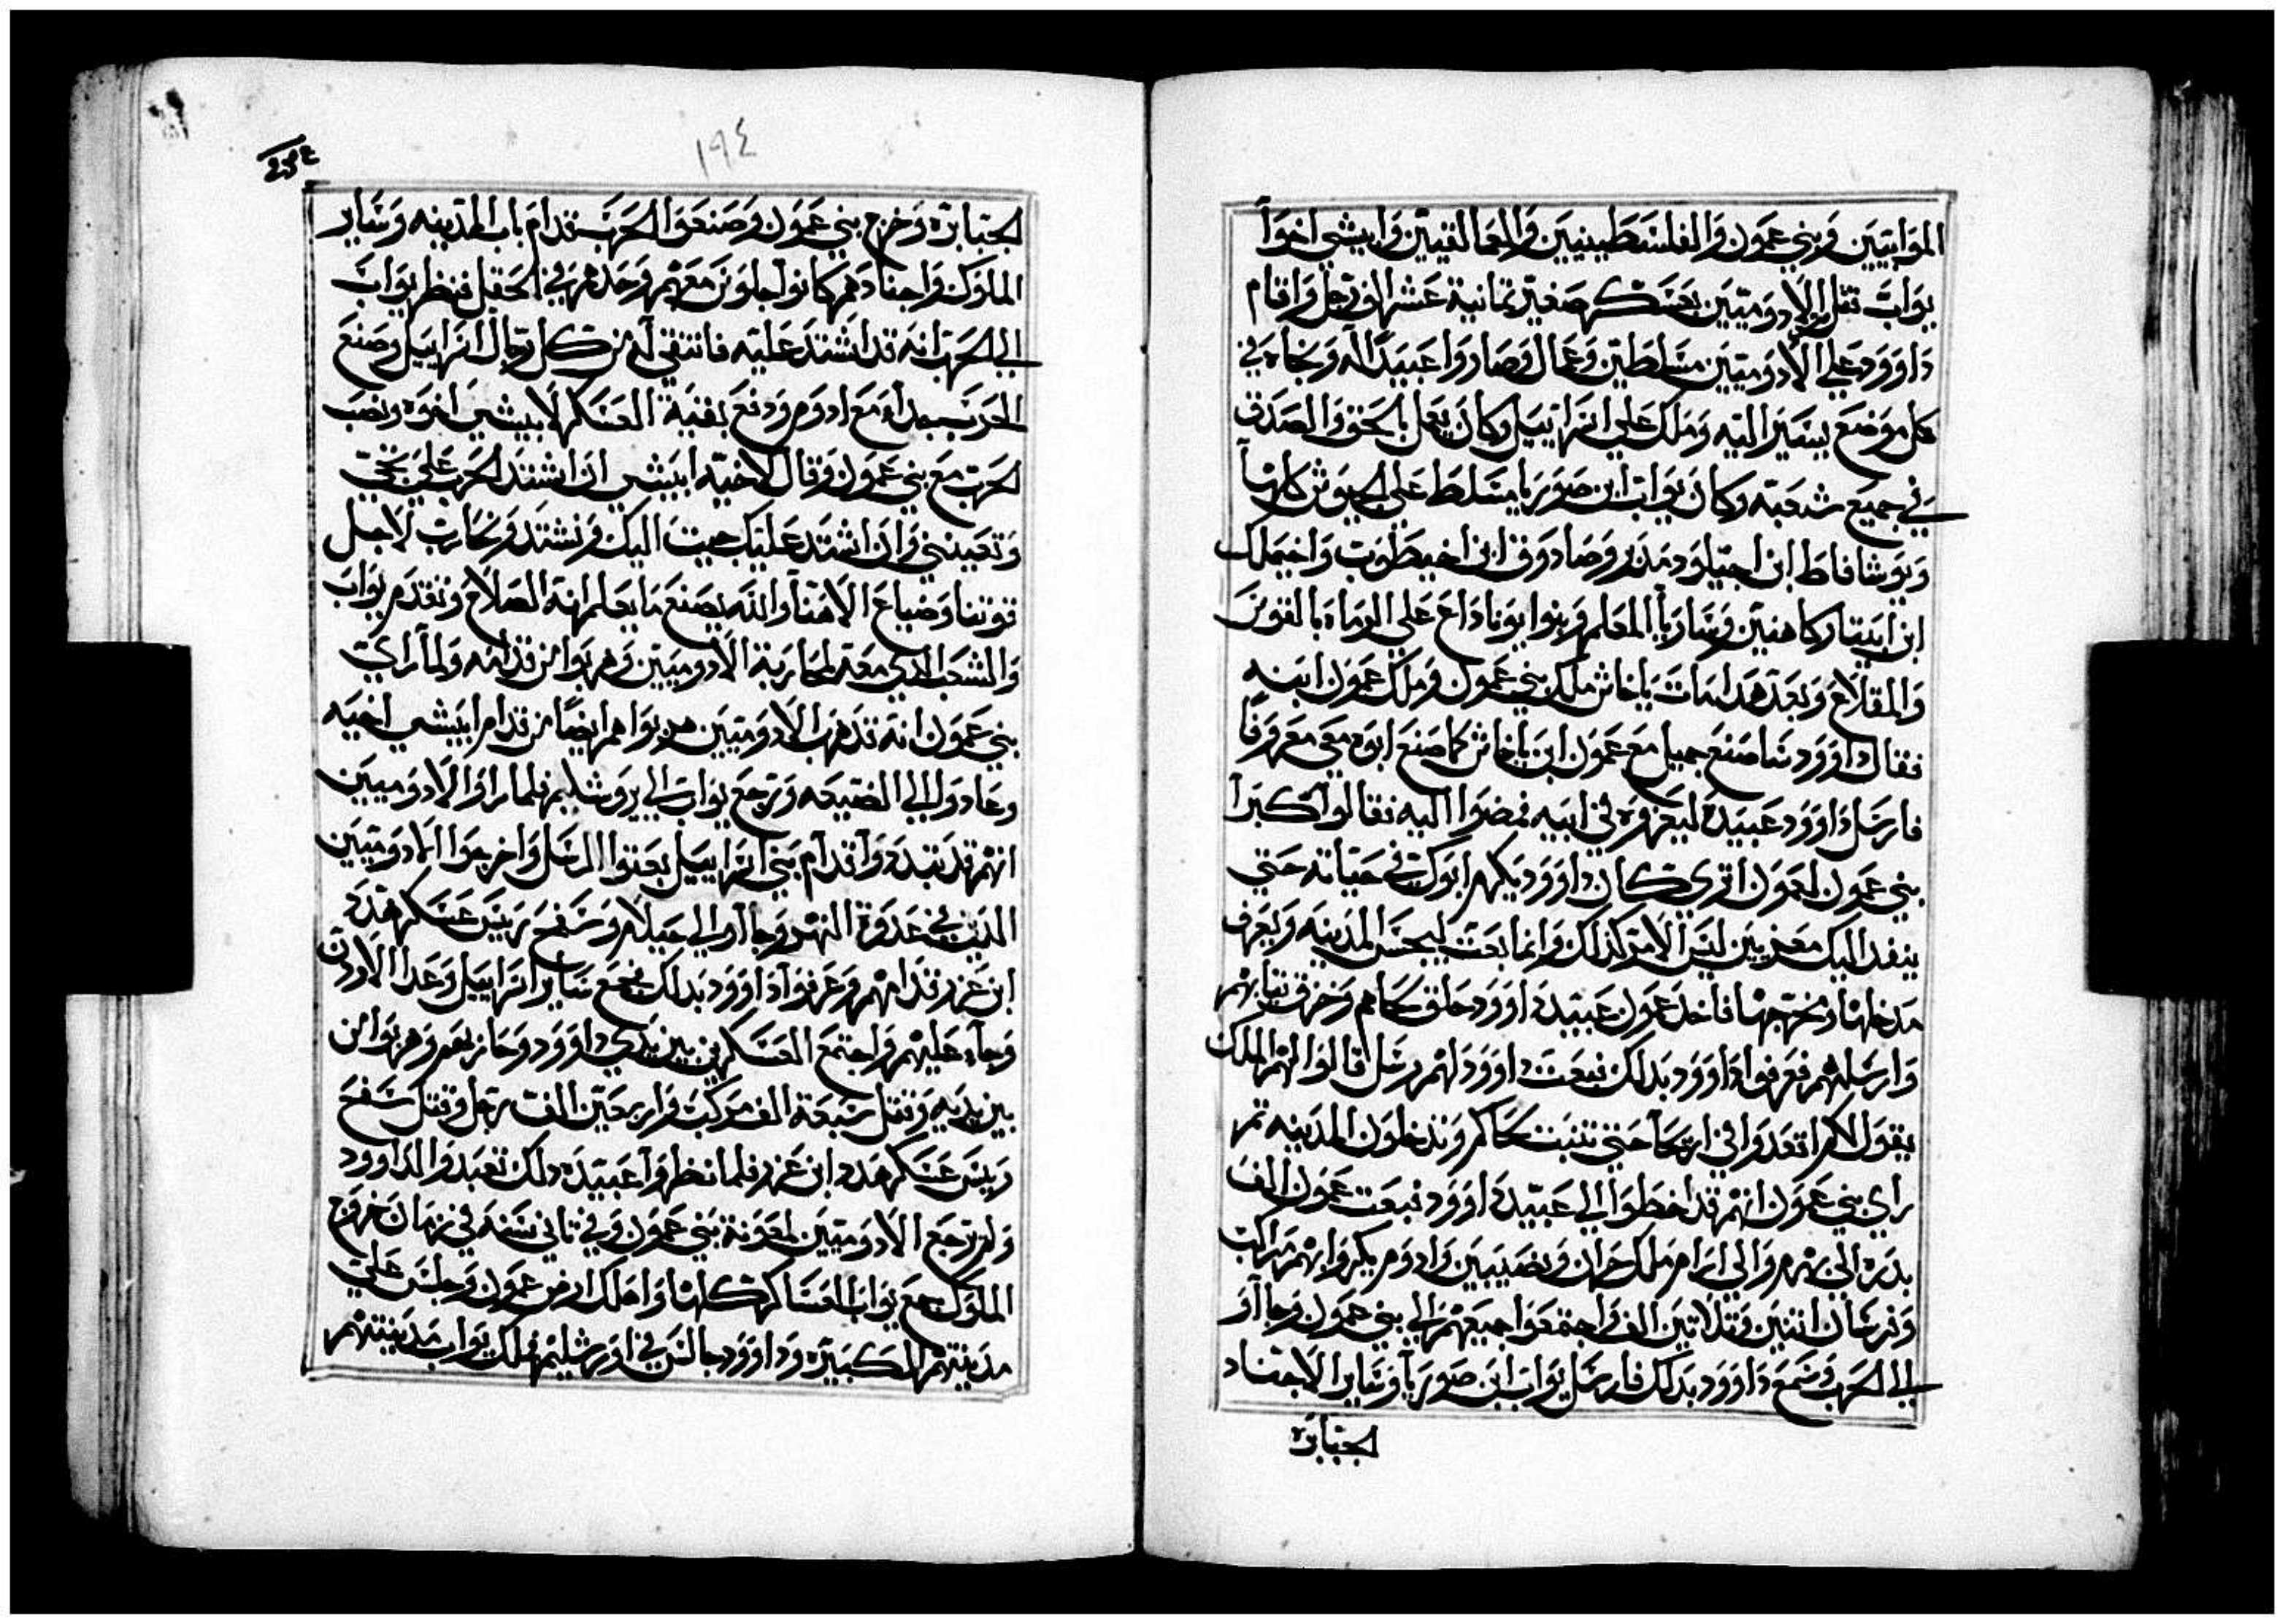 الموابيين وبني عمون والفلسطينيين والعمالقيين وابيشي اخوا
يواب نقل الادوميين بعسكر صغير ثمانية عشر الف رجل واقام
داوود علي الادوميين مسلطين وعمال وصاروا عبيدا له ونجاه في
كل موضع يسير اليه وملك علي اسراييل وكان يعمل بالحق والصدق
في جميع شعبه وكان يواب ابن صوريا مسلط علي الجيوش كلها
ويوشافاط ابن احيلود مدبر وصادوق ابن اخيطوب واخيملك
ابن ابيتار كاهنين وساريا المعلم وبنوا يوناداع علي الرماه بالقوس
والمقلاع وبعد هدا مات ياخاش ملك بني عمون وملك عمون ابنه
فقال داوود سا صنع جميل مع عمون ابن ياخاش كما صنع ابوه معي معروفا
فارسل داوود عبيده ليعزوه في ابيه فمضوا اليه فقالوا كبرا
بني عمون لعمون اتري كان داوود يكرم ابوك في حياته حتي
ينفد اليك معزيين ليس الامر كدلك وانما بعث ليجس المدينه ويعرف
مدخلها ومخرجها فاخد عمون عبيد داوود حلق لحاهم وخرق تيابهم
وارسلهم فعرفوا داوود بدلك فبعت داوود لهم رسل قالوا لهم الملك
يقول لكم اقعدوا في اريحا حتي تنبت لحاكم وتدخلون المدينه تم
راي بني عمون انهم قد اخطوا الي عبيد داوود فبعت عمون الف
بدره الي بهرم والي ارام ملك حران ونصيبين وادوم يكروا بهم مراكب
وفرسان اتنين وتلاتين الف واجتمعوا جميعهم الي بني عمون وجااوا
الي الحرب وسمع داوود بدلك فارسل يواب ابن صوريا وساير الاجناد
الجبابره
١٩٤
الجبابره وخرج بني عمون وصنعوا الحرب قدام باب المدينه وساير
الملوك واجنادهم كانوا جلوس معهم وحدهم في الحقل فنظر يواب
الي الحرب انه قد اشتد عليه فانتقي له من كل رجال اسراييل وصنع
الحرب مع ادوم ودفع بقية العسكر لابيشي اخوه ونصب
الحرب مع بني عمون وقال لاخيه ابيشي ان اشتد الحرب علي تجي
وتعينني وان اشتد عليك جيت اليك ونشتد ونحارب لاجل
قوتنا وضياع الاهنا والله يصنع ما يعلم انه الصلاح وتقدم يواب
والشعب الدي معه لمحاربة الادوميين وهربوا من قدامه ولما راي
بني عمون انه قد هرب الادوميين هربوا هم ايضا من قدام ابيشي اخيه
وعادوا الي الضيعه ورجع يواب الي يروشليم فلما راوا الادوميين
انهم قد تبددوا قدام بني اسراييل بعتوا الرسل واخرجوا الادوميين
الدين في عدوة النهر وجااوا الي حيلام وسفح رييس عسكر هدد
ابن عزر قدامهم وعرفوا داوود بدلك فجمع ساير اسراييل وعدا الاردن
وجاء عليهم واجتمع العسكرين بين يدي داوود وحاربهم وهربوا من
بين يديه وقتل سبعة الف مركب واربعين الف رجل وقتل سفح
رييس عسكر هدد ابن عزر فلما نظروا عبيده دلك تعبدوا لداوود
ولم يرجع الادوميين لمعونة بني عمون وفي تاني سنه في زمان خروج
الملوك جمع يواب العساكر كلها واهلك ارض عمون وجلس علي
مدينتهم الكبيره وداوود جالس في اورشليم فملك يواب مدينتهم